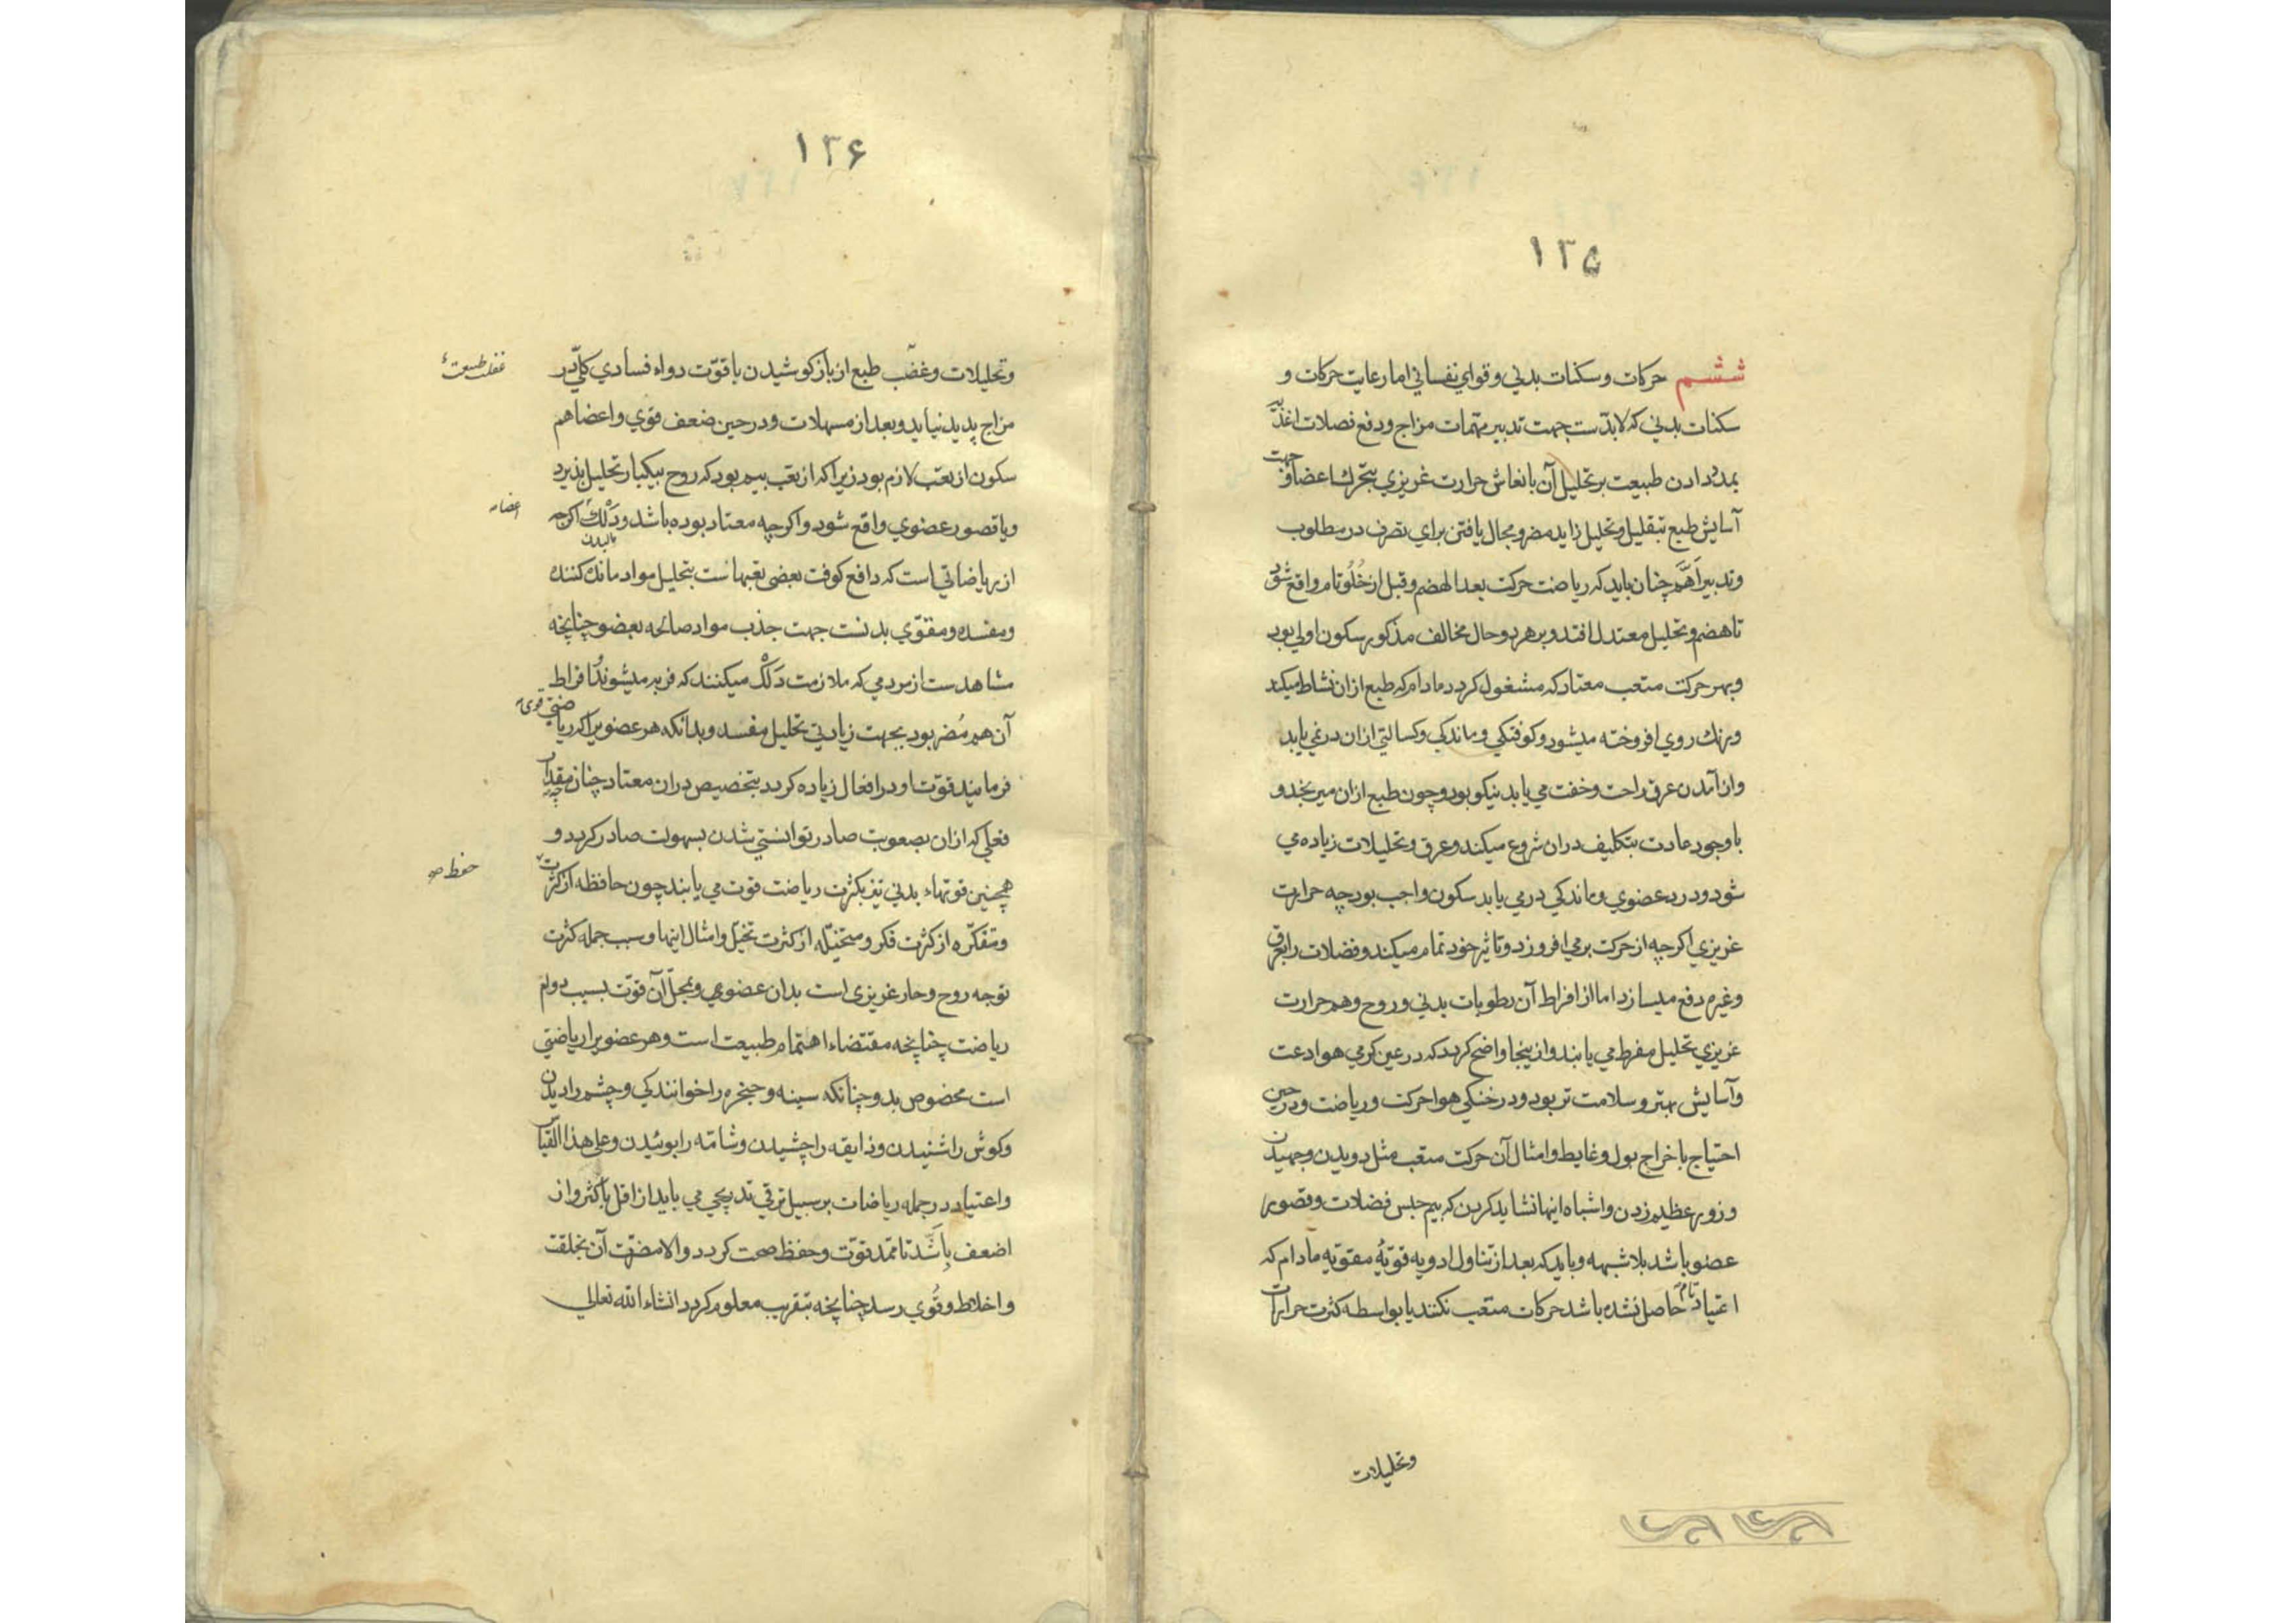 ۱۳۵
ششم حرکات و سکنات بدني و قواي نفساني اما رعایت حرکات و
سکنات بدني که لابدّست جهت تدبیر مهمات مزاج و دفع فضلات اغذیه
بمدد دادن طبیعت بر تحلیل آن بانعاش حرارت غریزي بتحریک اعضا و جهت
آسایش طبع بتقلیل و تحلیل زاید مضر و مجال یافتن براي تصرف در مطلوب
و تدبیر اَهَمّ چنان باید که ریاضت حرکت بعد الهضم و قبل از خُلُو تام واقع شود
تا هضم و تحلیل معتدل افتد و بر هر دو حال مخالف مذکور سکون اولي بود
و بهر حرکت متعب معتاد که مشغول کردد مادام که طبع ازان نشاط میکند
و رنک روي افروخته میشود و کوفتکي و ماندکي و کسالتي ازان در نمي یابد
و از آمدن عرق راحت و خفت مي یابد نیکو بود و چون طبع ازان میرنجد و
با وجود عادت بتکلیف دران شروع میکند و عرق و تحلیلات زیاده مي
شود و درد عضوي و ماندکي درمي یابد سکون واجب بود چه حرارت
غریزي اکرچه از حرکت برمي افروزد و تاثیر خود تمام میکند و فضلات را بعرق
و غیره دفع میسازد اما از افراط آن رطوبات بدني و روح و هم حرارت
غریزي تحلیل مفرط مي یابند و ازینجا واضح کردد که در عین کرمي هوا دعت
و آسایش بهتر و سلامت تر بود و در خنکي هوا حرکت و ریاضت و در حین
احتیاج باخراج بول و غایط و امثال آن حرکت متعب مثل دویدن و جهیدن
و زور عظیم زدن و اشباه اینها نشاید کردن که بیم حبس فضلات و قصور
عضو باشد بلا شبهه و باید که بعد از تناول ادویه قویّهٔ مقویه مادام که
اعتیاد تام حاصل نشده باشد حرکات متعب نکنند یا بواسطه کثرت حرارت
و تحلیلات
۱۳۶
و تحلیلات و غضب طبع از باز کوشیدن با قوّت دواء فسادي کلّي در
غفلت طبیعت
مزاج پدید نیاید و بعد از مسهلات و در حین ضعف قوي و اعضا هم
سکون از تعب لازم بود زیرا که از تعب بیم بود که روح بیکبار تحلیل پذیرد
و یا قصور عضوي واقع شود و اکرچه معتاد بوده باشد و دَلْک اکرچه
اعضاء
مالیدن
از ریاضاتي است که دافع کوفت بعضي تعبهاست بتحلیل مواد مانده کننده
و مفسده و مقوّي بدنست جهت جذب مواد صالحه بعضو چنانچه
مشاهدست از مردمي که ملازمت دَلْک میکنند که فربه میشوند و افراط
آن هم مُضر بود بجهت زیادتي تحلیل مفسد و بدانکه هر عضویرا که ریاضتي قوی
فرمایند قوّت او در افعال زیاده کردد بتخصیص دران معتاد چنانچه مقدار
فعلي که ازان بصعوبت صادر توانستي شدن بسهولت صادر کردد و
همچنین قوتهاء بدني نیز بکثرت ریاضت قوت مي یابند چون حافظه از کثرت
حفظ صح
و متفکّره از کثرت فکر و متخیّله از کثرت تخیّل و امثال اینها و سبب جمله کثرت
توجه روح و حار غریزی است بدان عضوي و بمحلّ آن قوّت بسبب دوام
ریاضت چنانچه مقتضاء اهتمام طبیعت است و هر عضویرا ریاضتي
است مخصوص بدو چنانکه سینه و حنجره را خوانندکي و چشم را دیدن
و کوش را شنیدن و ذایقه را چشیدن و شامّه را بوئیدن و علي هذا القیاس
و اعتیاد در جمله ریاضات بر سبیل ترقي تدریجي مي باید از اقل باکثر و از
اضعف باشدّ تا ممدّ قوّت و حفظ صحت کردد و الا مضرّت آن بخلقت
و اخلاط و قُوي رسد چنانچه بتقریب معلوم کردد انشاء الله تعالي